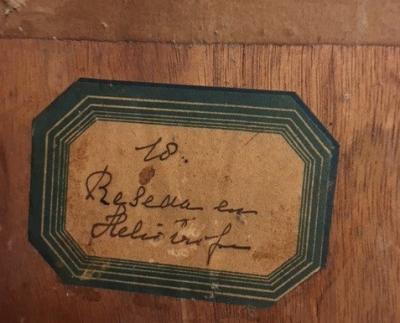 18.
Reseda en
Heliotrop